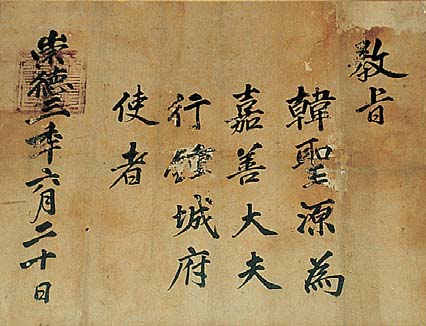 教旨
韓聖源為
嘉善大夫
行鍾城府
使者
崇德三年六月二十日